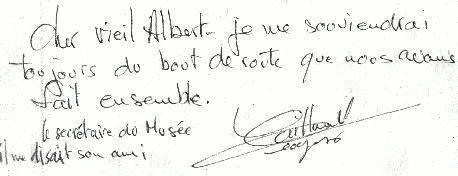 Cher vieil Albert - je me souviendrai
toujours du bout de route que nous avons
fait ensemble.
le secrétaire du Musée
il me disait son ami